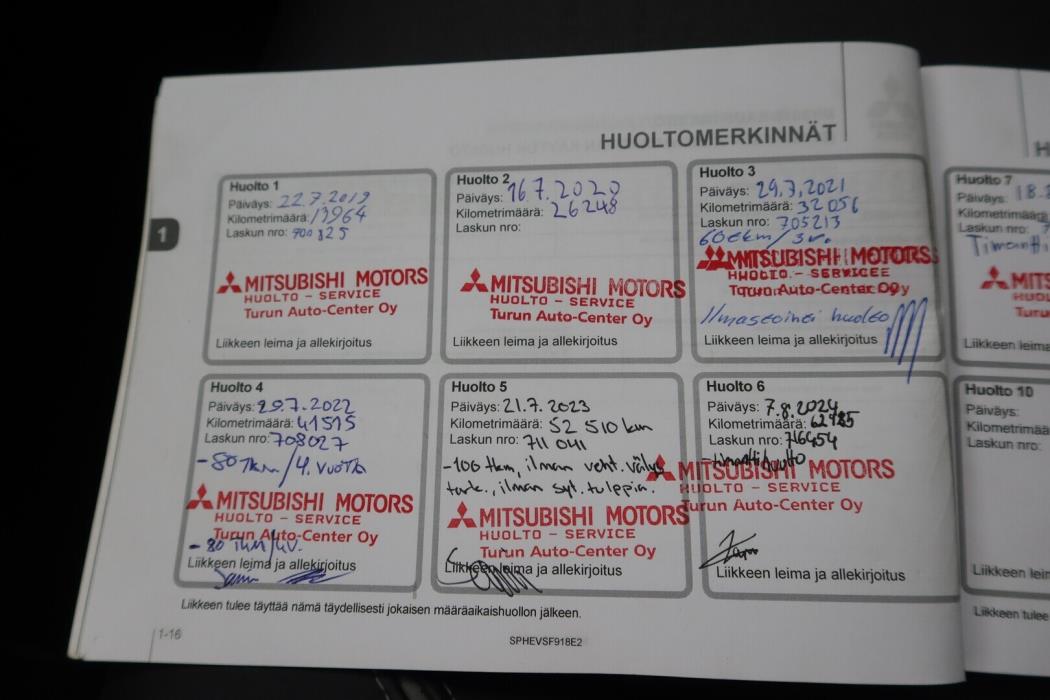 HUOLTOMERKINNÄT
1
Huolto 1
Päiväys: 22.7.2019
Kilometrimäärä: 13964
Laskun nro:
MITSUBISHI MOTORS
HUOLTO – SERVICE
Turun Auto-Center Oy
Liikkeen leima ja allekirjoitus
Huolto 2
Päiväys: 16.7.2020
Kilometrimäärä: 26248
Laskun nro:
MITSUBISHI MOTORS
HUOLTO – SERVICE
Turun Auto-Center Oy
Liikkeen leima ja allekirjoitus
Huolto 3
Päiväys: 29.7.2021
Kilometrimäärä: 32056
Laskun nro: 705213
60tkm/3v.
MITSUBISHI MOTORS
HUOLTO – SERVICE
Turun Auto-Center Oy
huolto
Liikkeen leima ja allekirjoitus
Huolto 4
Päiväys: 29.7.2022
Kilometrimäärä: 41515
Laskun nro: 708027
-80tkm/4.vuotta
MITSUBISHI MOTORS
HUOLTO – SERVICE
Turun Auto-Center Oy
-80 Tkm/4V.
Liikkeen leima ja allekirjoitus
Huolto 5
Päiväys: 21.7.2023
Kilometrimäärä: 52 510 km
Laskun nro: 711041
-100 tkm, ilman vent. välys
tark., ilman syt. tulppia.
MITSUBISHI MOTORS
HUOLTO – SERVICE
Turun Auto-Center Oy
Liikkeen leima ja allekirjoitus
Huolto 6
Päiväys: 7.8.2024
Kilometrimäärä: 62985
Laskun nro: 716454
-timanttihuolto
MITSUBISHI MOTORS
HUOLTO – SERVICE
Turun Auto-Center Oy
Liikkeen leima ja allekirjoitus
Liikkeen tulee täyttää nämä täydellisesti jokaisen määräaikaishuollon jälkeen.
1-16
SPHEVSF918E2
H
Huolto 7
Päiväys: 18.
Kilometrimäärä
Laskun nro: 7
Timantti
MITS
HUOL
Turu
Liikkeen leima
Huolto 10
Päiväys:
Kilometrimää
Laskun nro:
Liikkeen lei
Liikkeen tulee